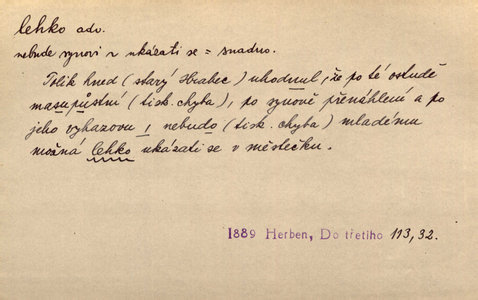 lehko adv.
nebude synovi v ukázati se = snadno.
Tolik hned (starý Hrabec) uhodnul, že po té ostudě
masupůstní (tisk. chyba), po synově přenáhlení a po
jeho výhazovu, nebudo (tisk. chyba) mladému
možná lehko ukázati se v městečku.
1889 Herben, Do třetího 113, 32.